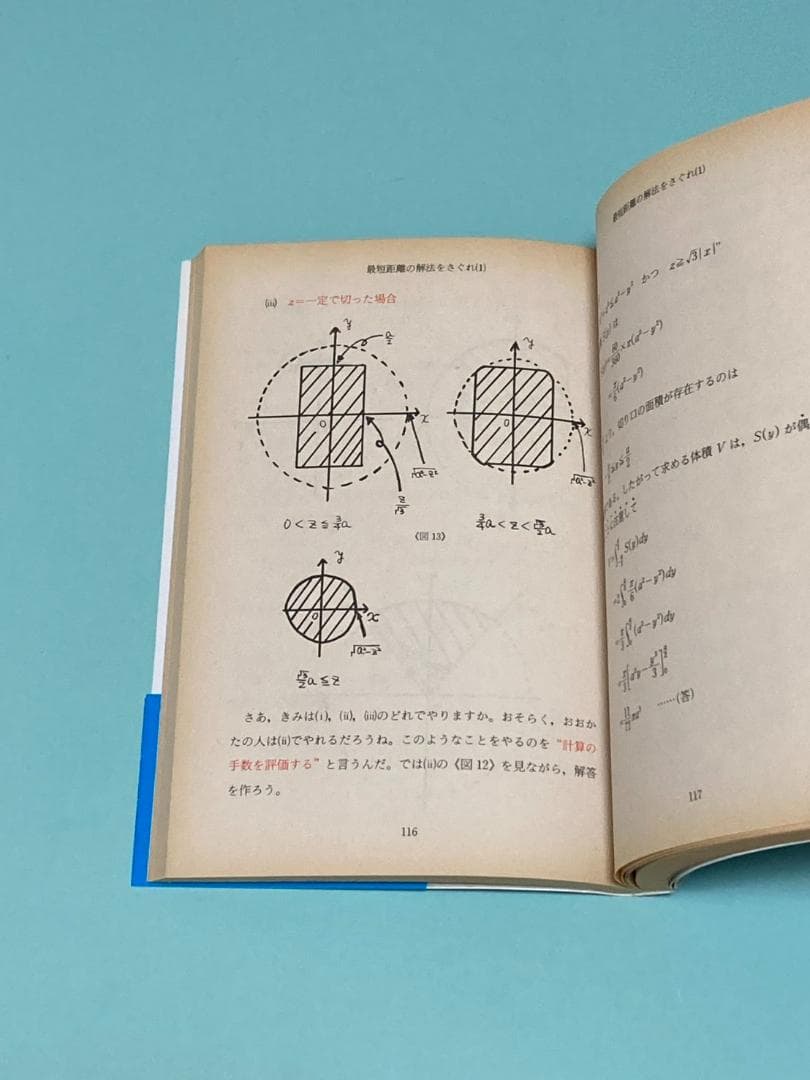 最短距離の解法をさぐれ(1)
(iii) z=一定で切った場合
y
a/2
0
x
√a²−z²
z/√3
0<z≦3/4a
y
0
x
√a²−z²
3/4a<z<√3/2a
《図13》
y
0
x
√a²−z²
√3/2a≦z
さあ，きみは(i)，(ii)，(iii)のどれでやりますか。おそらく，おおか
たの人は(ii)でやれるだろうね。このようなことをやるのを“計算の
手数を評価する”と言うんだ。では(ii)の《図12》を見ながら，解答
を作ろう。
116
最短距離の解法をさぐれ(1)
a²−y² かつ z≧√3|x|”
×π(a²−y²)
(a²−y²)
切り口の面積が存在するのは
したがって求める体積 V は，S(y) が偶
注意して
S(y)dy
(a²−y²)dy
(a²−y²)dy
……(答)
117